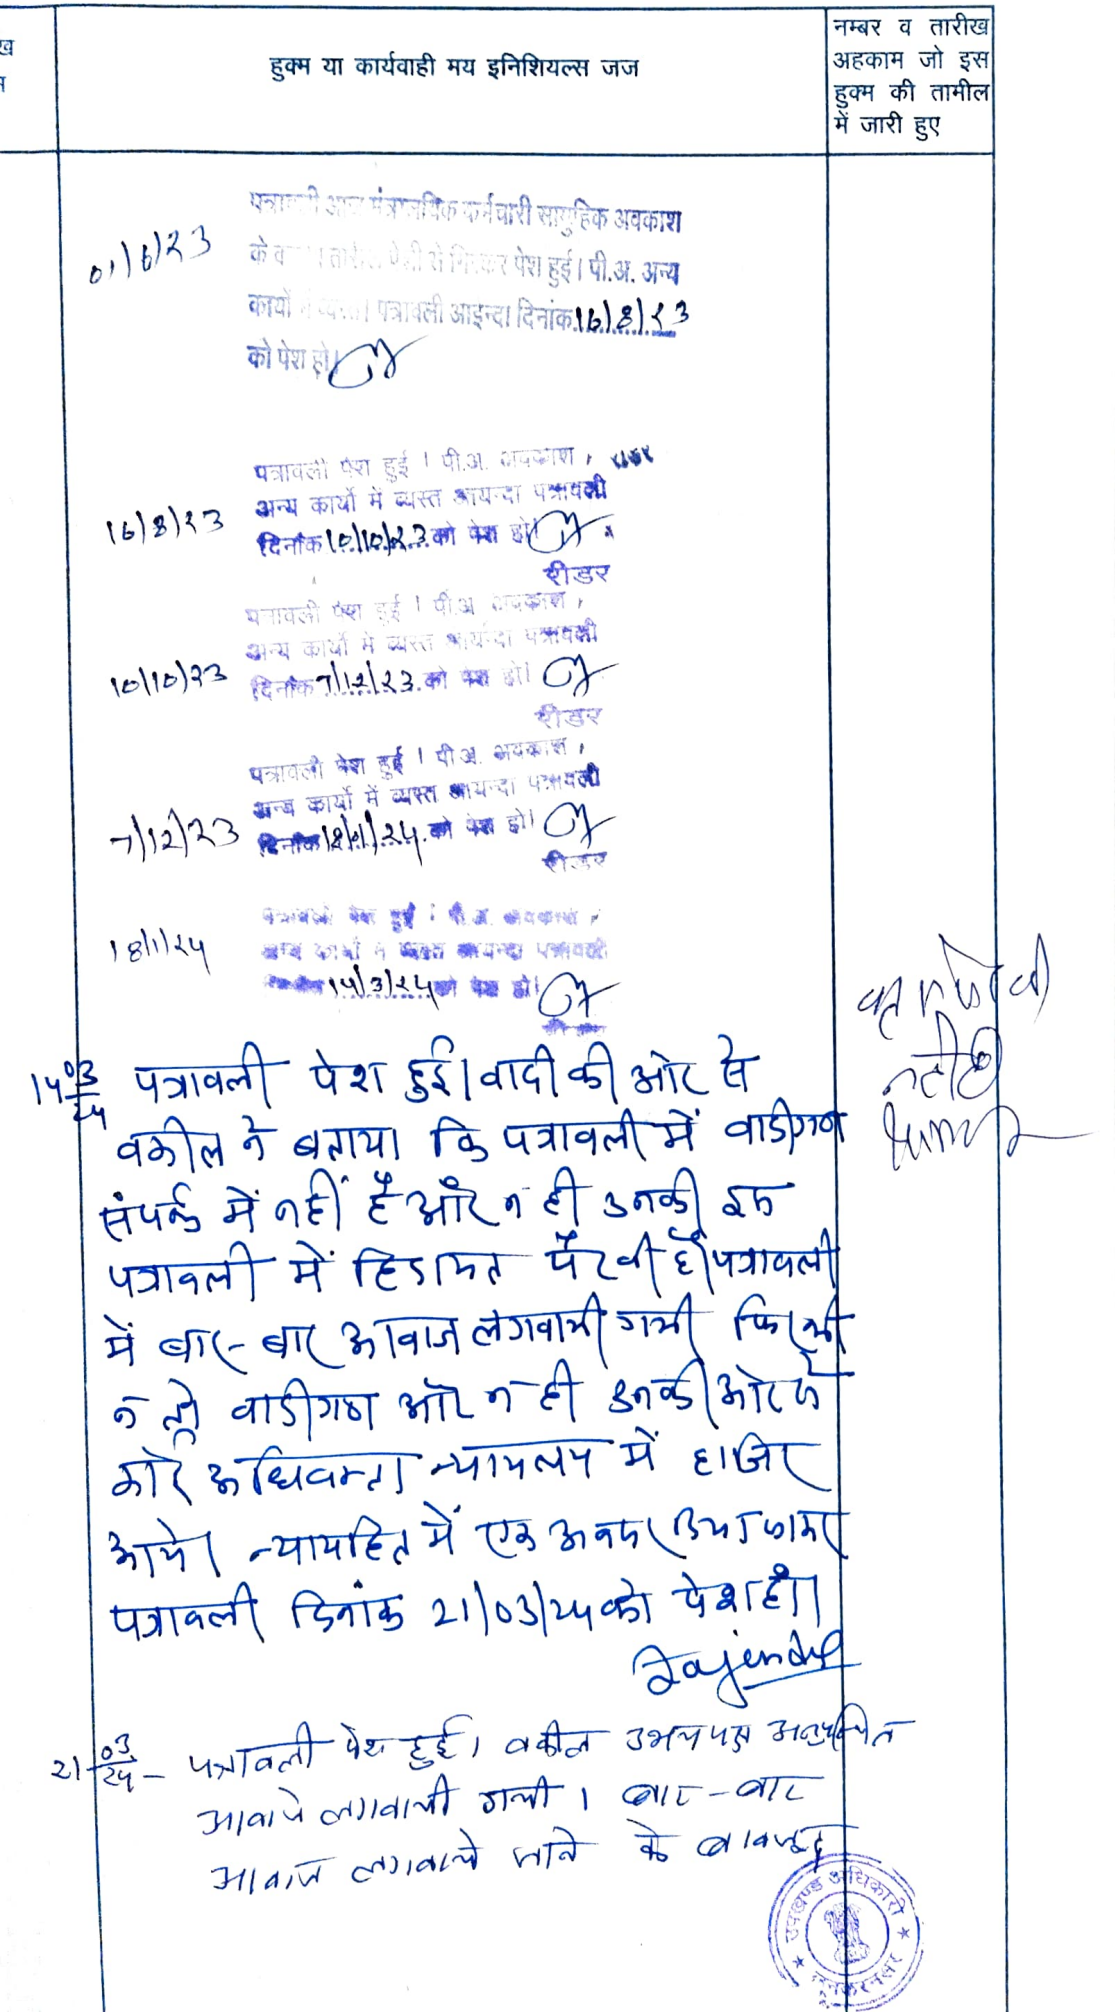 ख
हुक्म या कार्यवाही मय इनिशियल्स जज
नम्बर व तारीख
अहकाम जो इस
हुक्म की तामील
में जारी हुए
01/6/23
मंत्रालयिक कर्मचारी सामुहिक अवकाश
के पेश हुई। पी.अ. अन्य
कार्यों में व्यस्त। पत्रावली आइन्दा दिनांक 16/8/23
को पेश हो।
16/8/23
पत्रावली पेश हुई । पी.अ. अवकाश,
अन्य कार्यो में व्यस्त आयन्दा पत्रावली
दिनांक 10/10/23 को पेश हो।
रीडर
10/10/23
पत्रावली पेश हुई । पी.अ. अवकाश,
अन्य कार्यो में व्यस्त आयन्दा पत्रावली
दिनांक 7/12/23 को पेश हो।
रीडर
7/12/23
पत्रावली पेश हुई । पी.अ. अवकाश,
अन्य कार्यो में व्यस्त आयन्दा पत्रावली
दिनांक 18/1/24 को पेश हो।
रीडर
18/1/24
पत्रावली पेश हुई । पी.अ. अवकाश,
अन्य कार्यो में व्यस्त आयन्दा पत्रावली
दिनांक 14/3/24 को पेश हो।
14/03/24 पत्रावली पेश हुई। वादी की ओर से
वकील ने बताया कि पत्रावली में वादीगण
संपर्क में नहीं है और न ही उनकी इस
पत्रावली में हिदायत पैरवी है। पत्रावली
में बार-बार आवाज लगवायी गयी फिर भी
न तो वादीगण और न ही उनकी ओर से
कोई अधिवक्ता न्यायलय में हाजिर
आये। न्यायहित में एक अवसर दिया जाकर
पत्रावली दिनांक 21/03/24 को पेश हो।
Rajendra
21/03/24 - पत्रावली पेश हुई। वकील उभयपक्ष अनुपस्थित
आवाजे लगवायी गयी । बार-बार
आवाज लगवाये जाने के बावजूद
उपखण्ड अधिकारी
लूनकरनसर